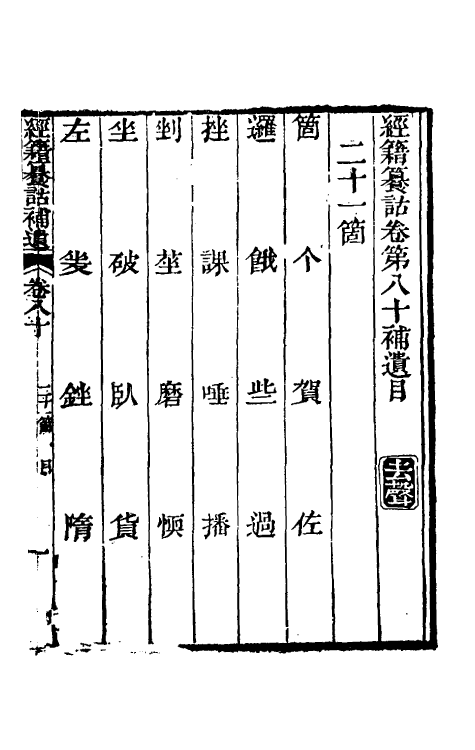 經籍籑詁卷第八十補遺目
去聲
二十一箇
箇 个 賀 佐
邏 餓 些 過
挫 課 唾 播
剉 莝 磨 愞
坐 破 臥 貨
左 㛗 銼 隋
經籍籑詁補遺 卷八十